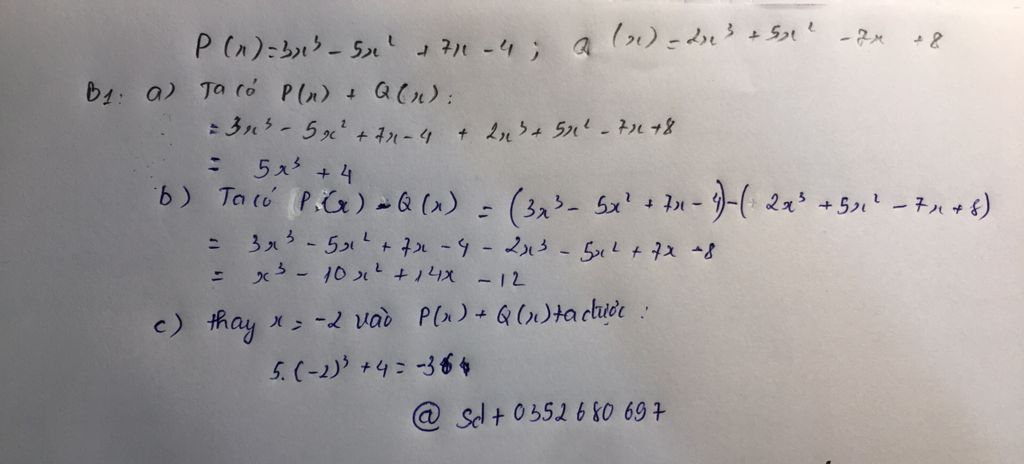 P(x)=3x³ - 5x² + 7x - 4 ; Q(x) = 2x³ + 5x² - 7x + 8
B1: a) Ta có P(x) + Q(x):
= 3x³ - 5x² + 7x - 4 + 2x³ + 5x² - 7x + 8
= 5x³ + 4
b) Ta có P(x) - Q(x) = (3x³ - 5x² + 7x - 4) - (2x³ + 5x² - 7x + 8)
= 3x³ - 5x² + 7x - 4 - 2x³ - 5x² + 7x - 8
= x³ - 10x² + 14x - 12
c) thay x = -2 vào P(x) + Q(x) ta được :
5.(-2)³ + 4 =
@ Sdt 0352680697